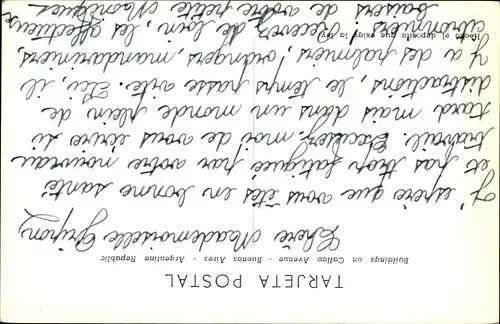 TARJETA POSTAL
Buildings on Callao Avenue - Buenos Aires - Argentine Republic
Chère Mademoiselle
J'espère que vous êtes en bonne santé
et pas trop fatiguée par votre nouveau
travail. Excusez-moi de vous écrire si
tard mais dans un monde plein de
distractions, le temps passe vite. Ici, il
y a des palmiers, orangers, mandariniers,
citronniers. Recevez de loin, les affectueux
baisers de votre petite Monique
Hecho el depósito que exige la ley